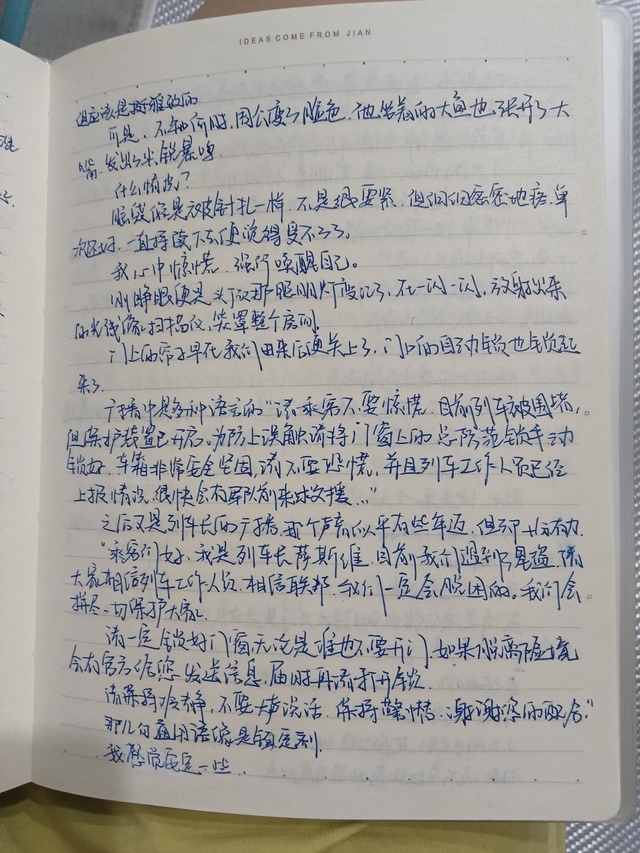 IDEAS COME FROM JIAN
但应该是挺雅致的
可是，不知何时，周公变了脸色，他坐着的大鱼也张开了大
嘴，发出了尖锐暴鸣
什么情况？
脑袋像是被针扎一样，不是很要紧，但细细密密地疼，单
次还好，一直持续下去便觉得受不了了。
我心中惊慌，强行唤醒自己。
刚睁眼便是头顶那照明灯变红了，在一闪一闪，放射出来
的光线像扫描仪，笼罩整个房间。
门上的帘子早在我们进来后便关上了，门口的自动锁也锁起
来了
广播中是多种语言的“请乘客不要惊慌，目前列车被围堵，
但保护装置已开启。为防止误触请将门窗上的防范锁手动
锁好，车箱非常安全坚固，请不要恐慌，并且列车工作人员已经
上报情况，很快会有军队前来救援...”
之后又是列车长的广播，那个声音似乎有些年迈，但却十分有力
“乘客们好，我是列车长萨斯维，目前我们遇到了星盗，请
大家相信列车工作人员，相信联邦，我们一定会脱困的。我们会
拼尽一切保护大家。
请一定锁好门窗无论是谁也不要开门，如果脱离险境
会有官方给您发送信息，届时再请打开锁
请保持冷静，不要大声说话，保持缄默，谢谢您的配合”
那几句通用语像是镇定剂
我感觉安定一些